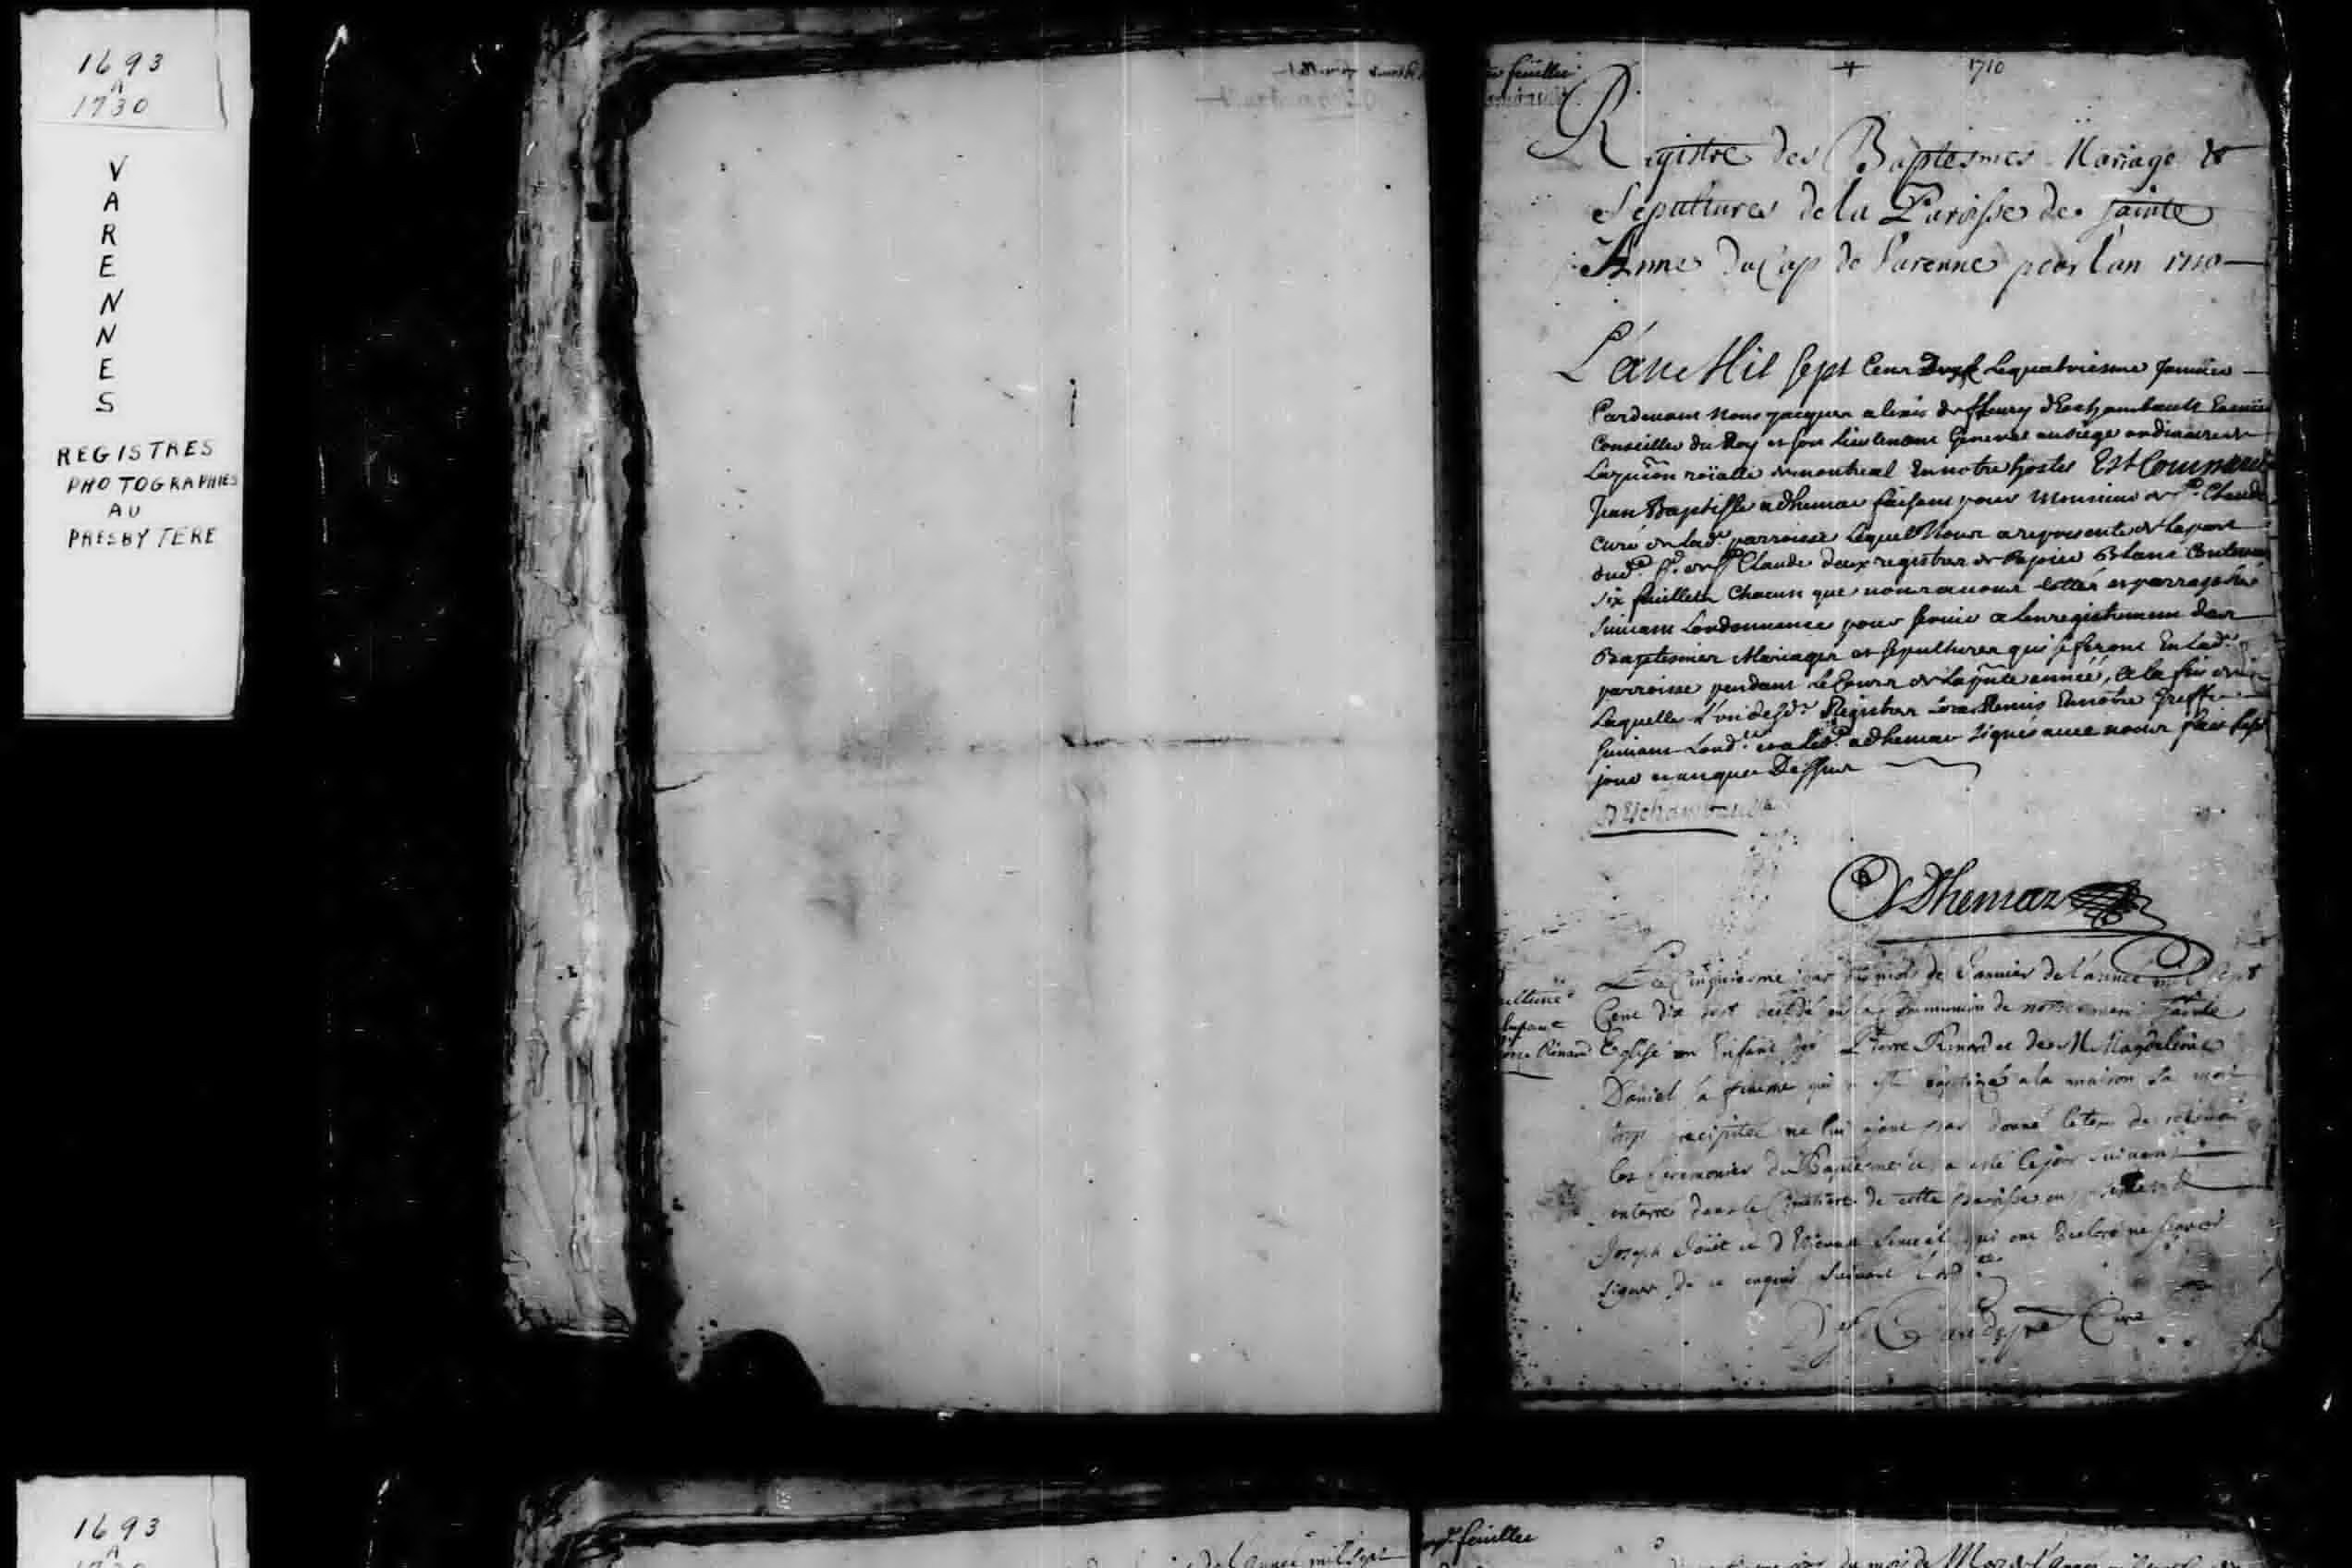 1693
A
1730
V
A
R
E
N
N
E
S
REGISTRES
PHOTOGRAPHIES
AU
PRESBYTERE
feuillet
1710
Registre des Baptesmes Mariage &
Sepultures de la Paroisse de sainte
Anne du Cap de Varenne pour l'an 1710
L'an Mil sept Cent Dix Le quatriesme Janvier
Pardevant Nous Jacques alexis de fleury d'Eschambault
Conseiller du Roy et son lieutenant General au siege ordinaire de
roialle de montreal En notre hostel Est Comparu
Jean Baptiste adhemar faisant pour Monsieur de St. Claude
Curé de lad. parroisse Lequel Nous a representé de la part
dud. Sr. de St Claude deux registres de Papier Blanc Contenant
six feuillets Chacun que nous avons cottés et parraphés
suivant Lordonnance pour servir a Lenregistrement des
Baptesmes Mariages et sepultures qui se feront En lad.
parroisse pendant Le Cours de La pnte année, a la fin de
Laquelle L'un desd. Registres sera Remis En notre Greffe
suivant Lord. et a led. adhemar signé avec nous fait les
jour et an que Dessus
D'Eschambault
Adhemar
Le cinquiesme jour du mois de Janvier de l'année mil sept
Cent dix est decedé en la Communion de notre mere sainte
Eglise un Enfant de Pierre Renard et de M. Magdeleine
Daniel sa femme qui a esté baptizé a la maison sa mort
trop precipitée ne lui aiant pas donné le tems de recevoir
les Ceremonies du Baptesme et a esté le jour suivant
enterré dans le Cimetiere de cette paroisse en presence de
Joseph et d'Etienne qui ont declaré ne sçavoir
signer de ce enquis suivant l'ord
Curé
Enfant
Renard
1693
A
de l'année mil sept
feuillet
du mois de